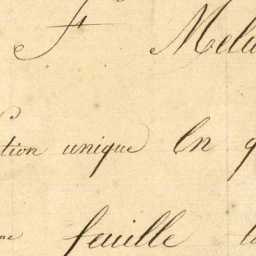 F Melu
tion unique En q
me feuille